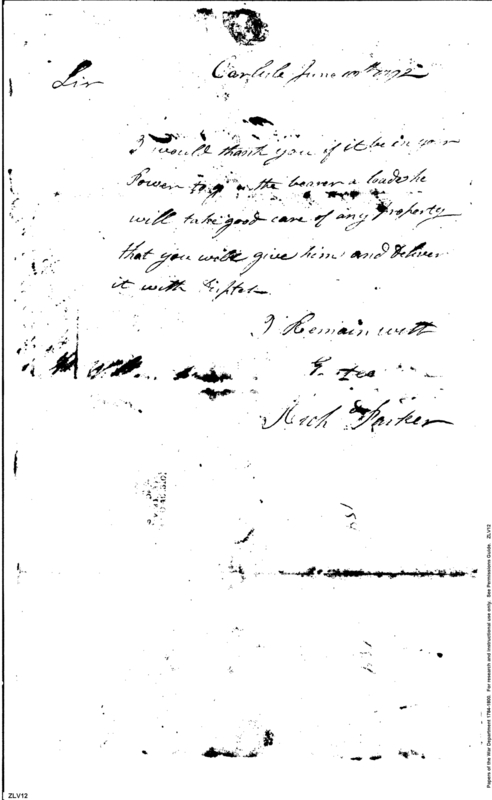 Carlisle June 10th 1792
Sir
I would thank you if it be in your
Power to the bearer a load he
will take good care of any Property
that you will give him and deliver
it with
I Remain with
Richd Parker
Papers of the War Department 1784-1800. For research and instructional use only. See Permissions Guide. ZLV12
ZLV12